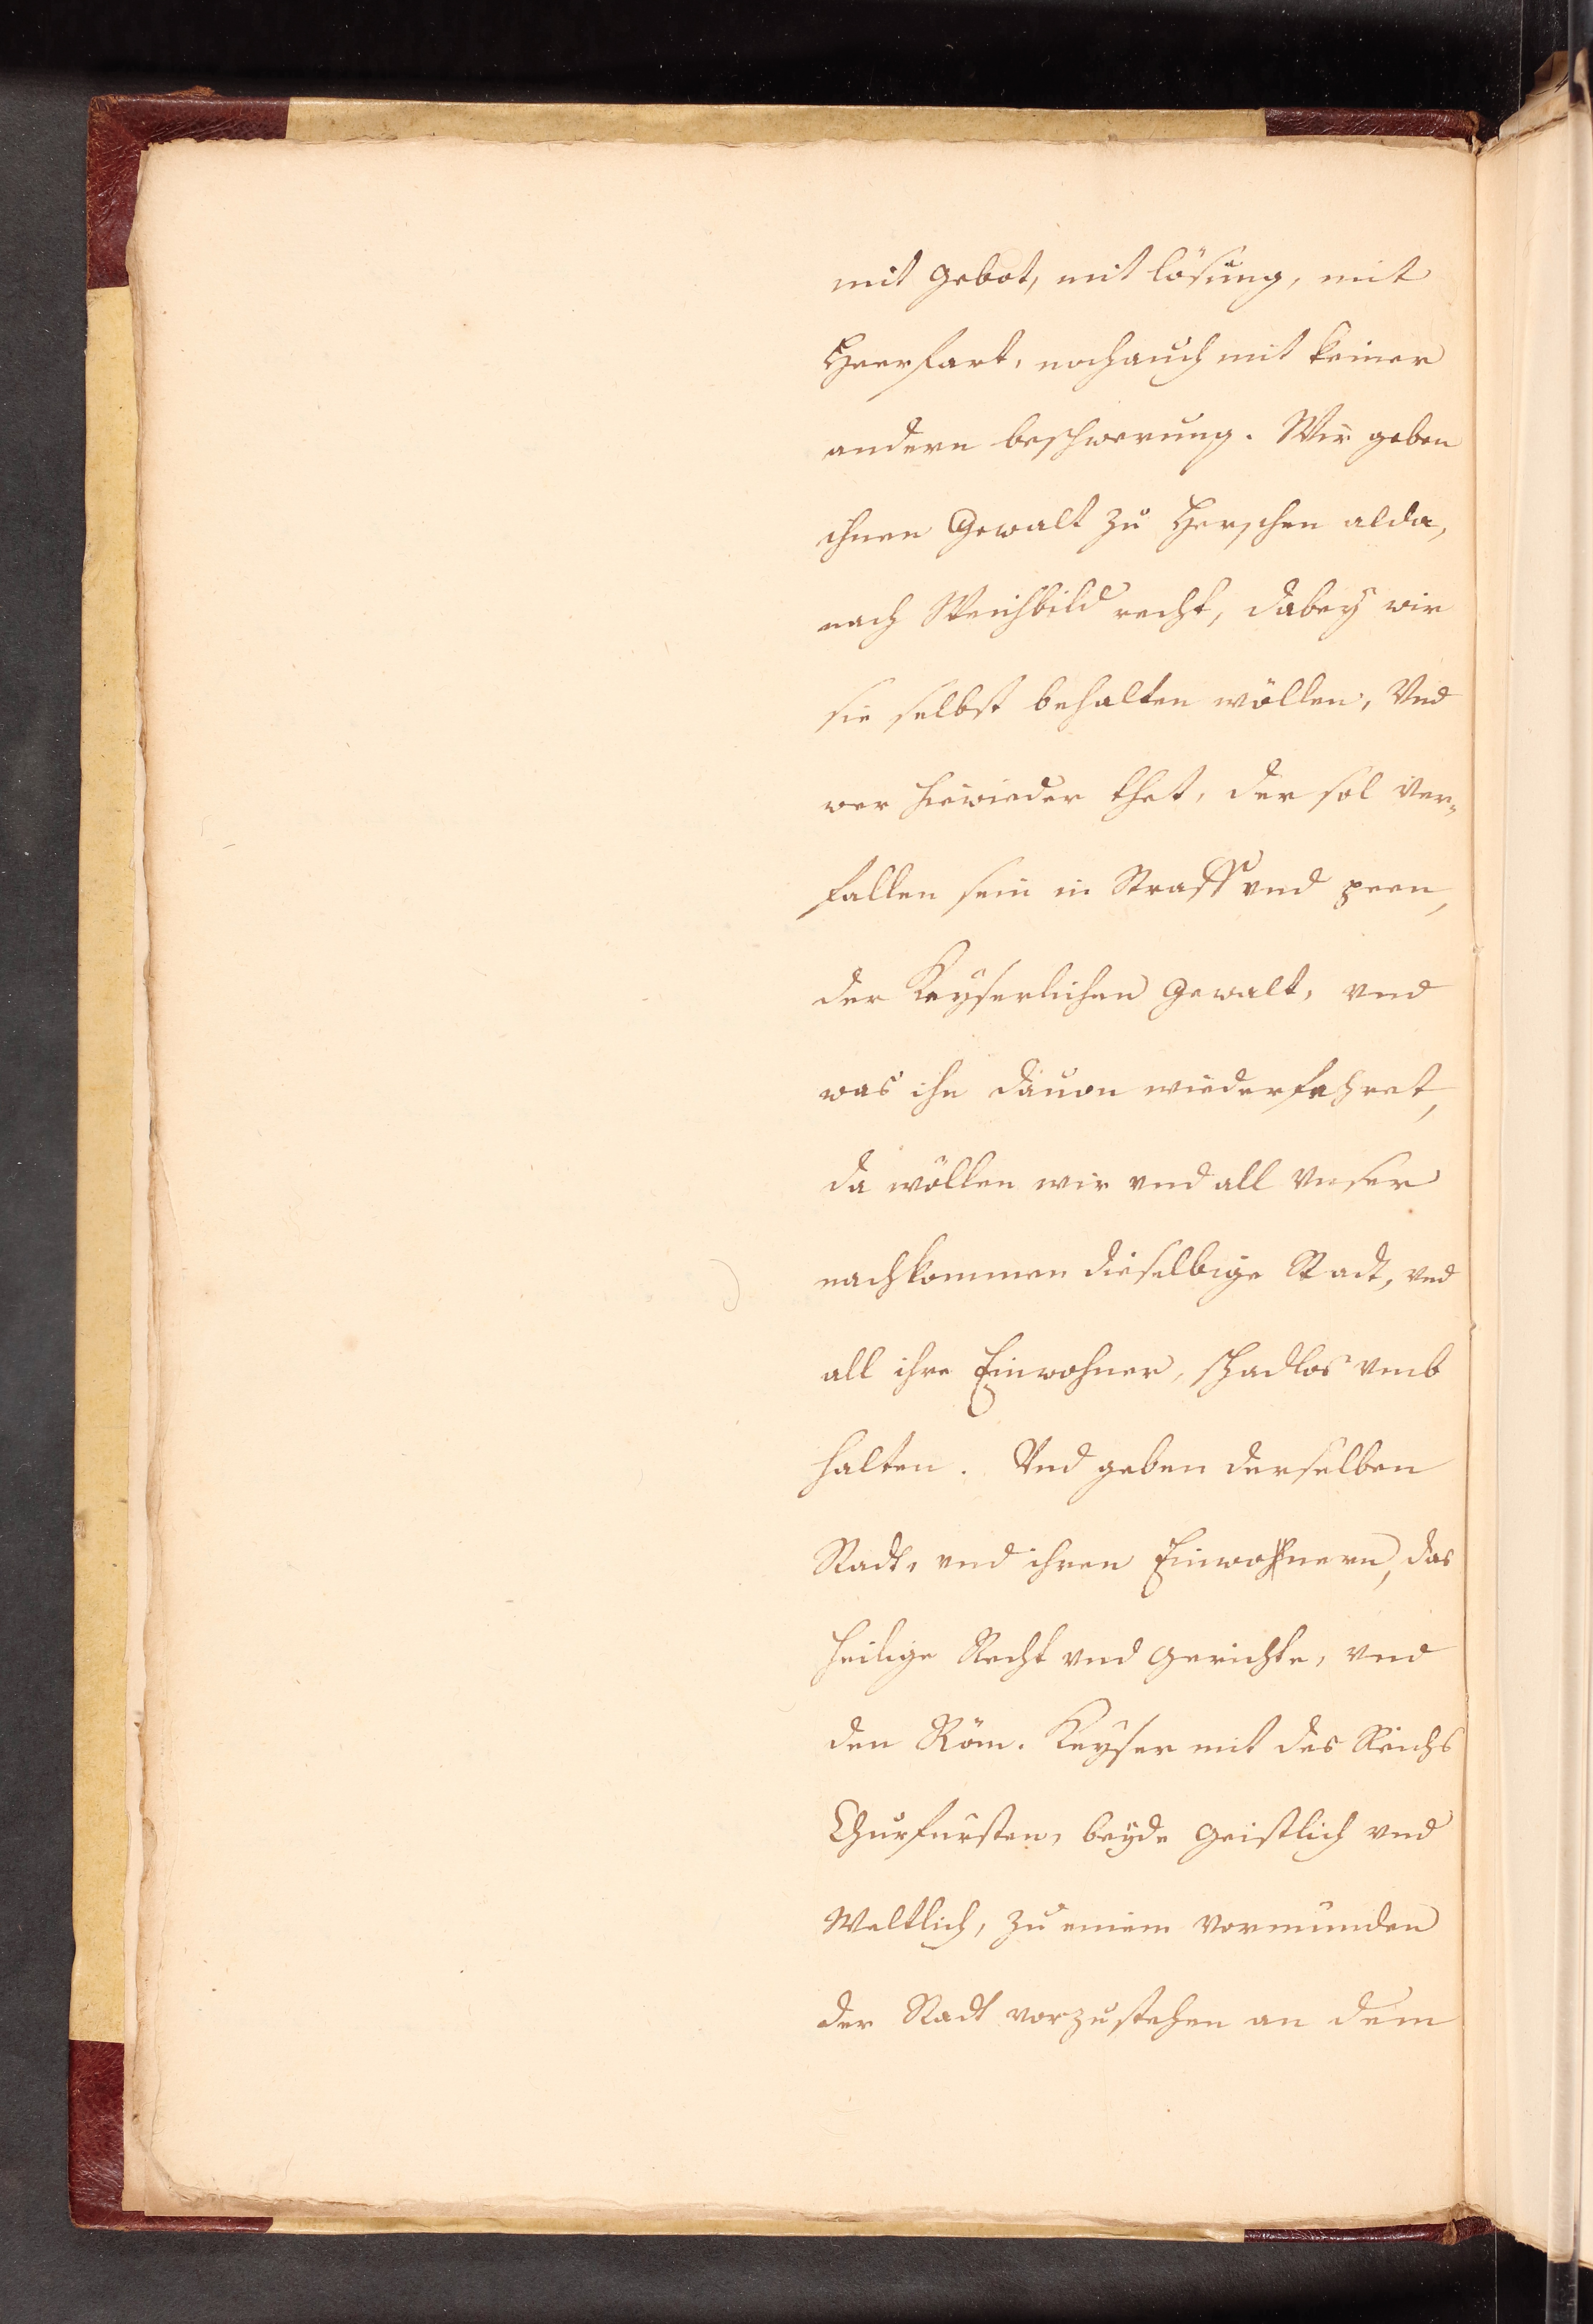 mit gebot, mit lösung, mit
Heerfart, noch auch mit keiner
andern beschwerung. Wir geben
ihnen Gewalt zu Herschen alda,
nach Weichbild recht, dabey wir
sie selbst behalten wöllen, Vnd
wer hiewieder thet, der sol ver⸗
fallen sein in Straff vnd peen,
der Keyserlichen Gewalt, vnd
was ihn dauon wiederfehret,
da wöllen wir vnd all vnser
nachkommen dieselbige Stadt, vnd
all ihre Einwohner, schadlos vmb
halten. Vnd geben derselben
Stadt, vnd ihren Einwohnern, das
heilige Recht vnd gerichte, vnd
den Röm. Keyser mit des Reichs
Churfürsten, beyde geistlich vnd
Weltlich, zu einem vormunden
der Stadt vorzustehen an dem